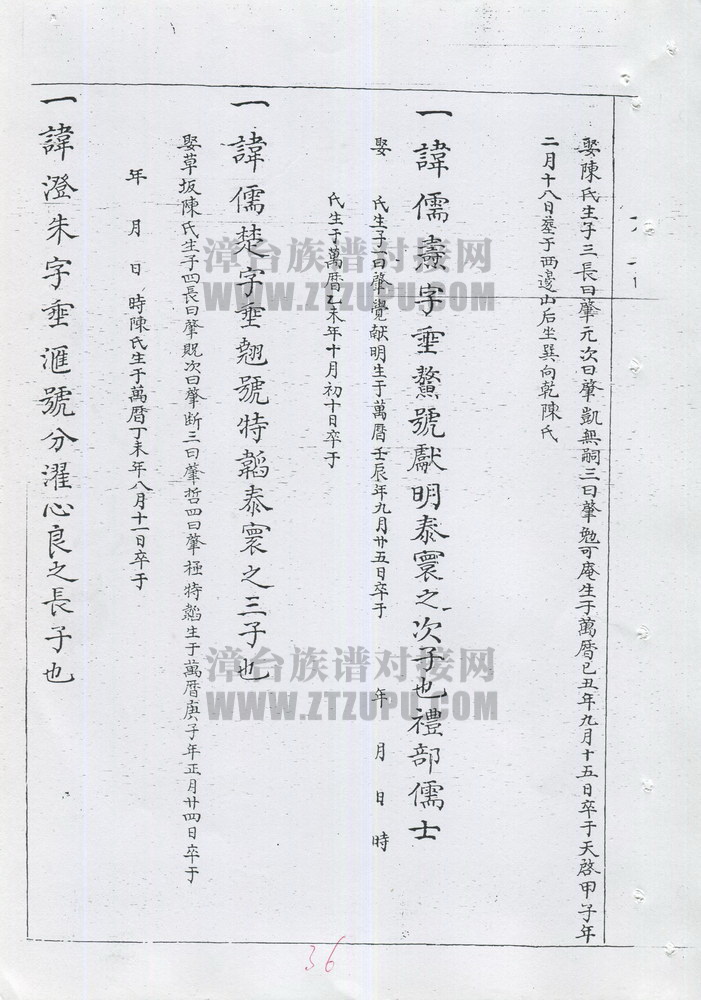 娶陳氏生子三長曰肇元次曰肇凱無嗣三曰肇勉可庵生于萬曆己丑年九月十五日卒于天啓甲子年
二月十八日葬于西邊山后坐巽向乾陳氏
一諱儒燾字垂鰲號獻明泰寰之次子也禮部儒士
娶 氏生子一曰肇覺献明生于萬曆壬辰年九月廿五日卒于 年 月 日 時
氏生于萬曆乙未年十月初十日卒于
一諱儒楚字垂翹號特韜泰寰之三子也
娶草坂陳氏生子四長曰肇貺次曰肇断三曰肇哲四曰肇極特韜生于萬曆庚子年正月廿四日卒于
年 月 日 時陳氏生于萬曆丁未年八月十一日卒于
一諱澄朱字垂滙號分濯心良之長子也
漳台族谱对接网
WWW.ZTZUPU.COM
漳台族谱对接网
WWW.ZTZUPU.COM
36